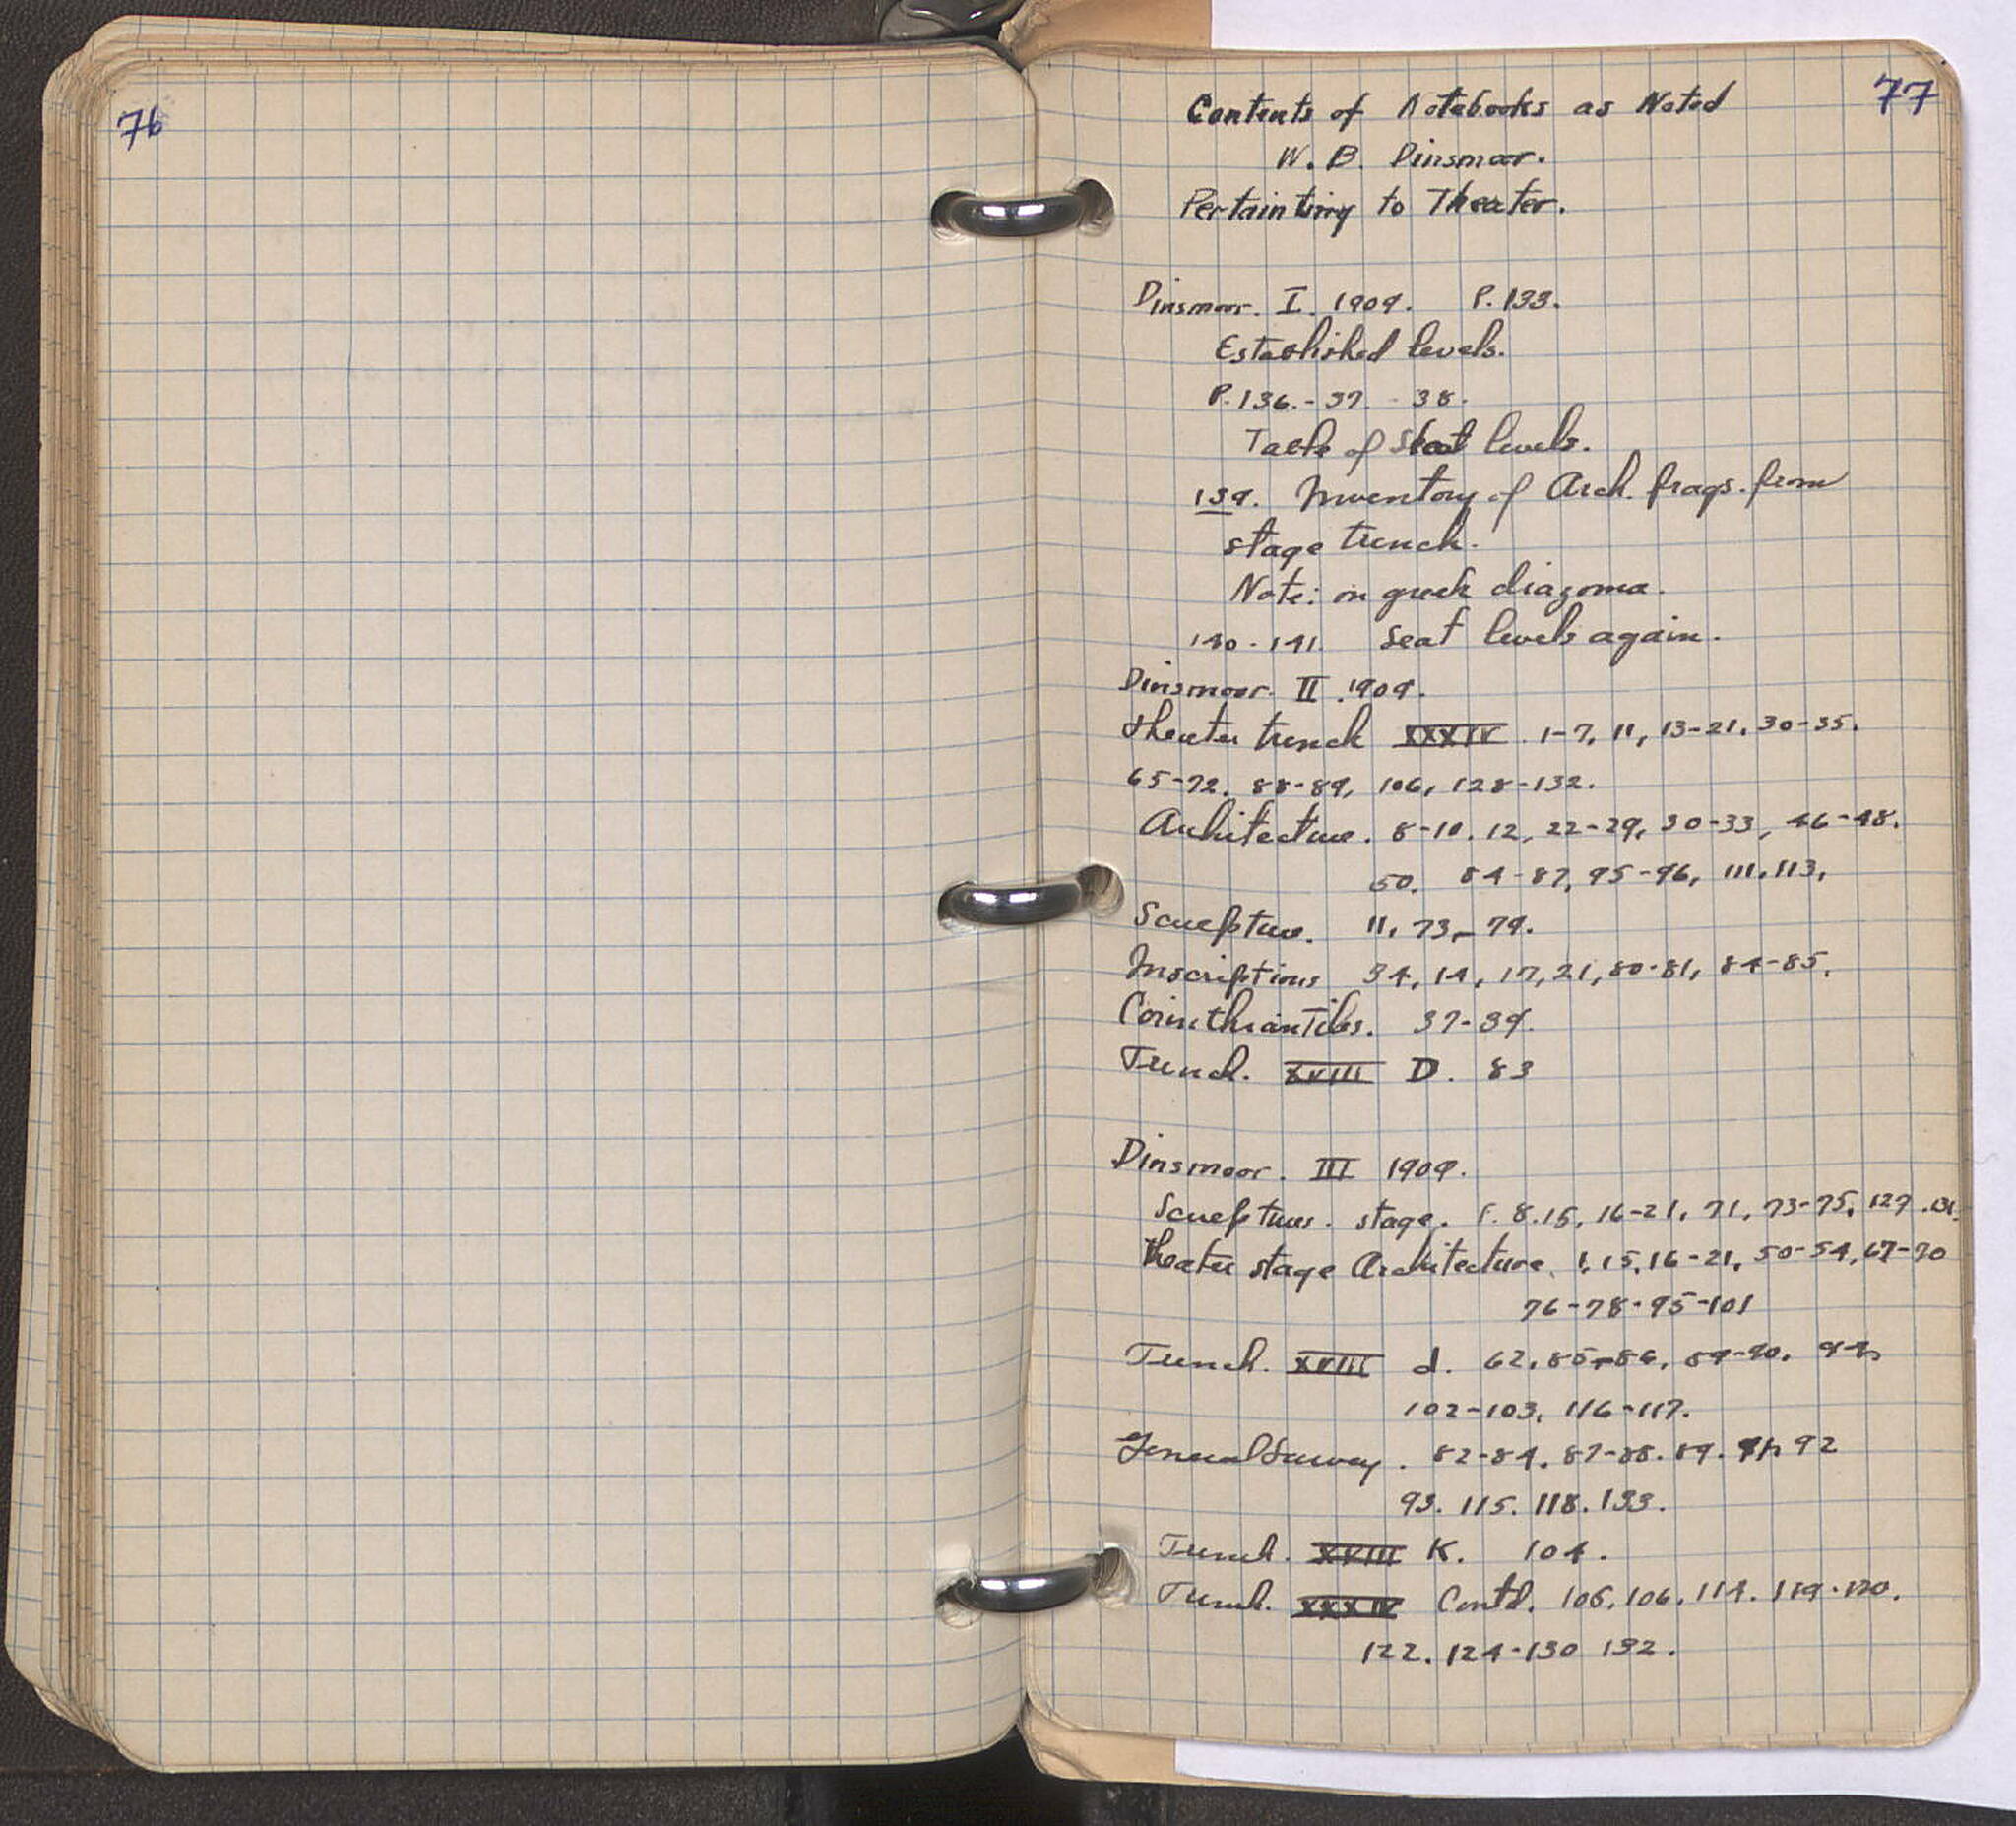 76
77
Contents of Notebooks as Noted
W. B. Dinsmoor.
Pertainting to Theater.
Dinsmoor. I. 1909. P. 133.
Established levels.
P. 136. - 37. - 38.
Table of Seat levels.
139. Inventory of Arch. frags. from
stage trench.
Note: on greek diazoma.
140 - 141. Seat levels again.
Dinsmoor. II. 1909.
theater trench XXXIV. 1-7, 11, 13-21, 30-35.
65-72. 88-89, 106, 128-132.
Architecture. 8-10. 12, 22-29, 30-33, 46-48.
50. 84-87, 95-96, 111, 113,
Sculpture. 11, 73-79.
Inscriptions 34, 14, 17, 21, 80-81, 84-85.
Corinthian Tiles. 37-39.
Trench. XVIII D. 83
Dinsmoor. III 1909.
Sculptures. stage. P. 8. 15, 16-21, 71, 73-75, 127.
theater stage Architecture. 1, 15, 16-21, 50-54, 67-70
76-78-95-101
Trench. XVIII d. 62, 85-86, 89-90.
102-103, 116-117.
General Survey. 82-84. 87-88. 89. 92
93. 115. 118. 133.
Trench. XVIII K. 104.
Trench. XXXIV Contd. 105, 106. 114. 119-120.
122. 124-130 132.